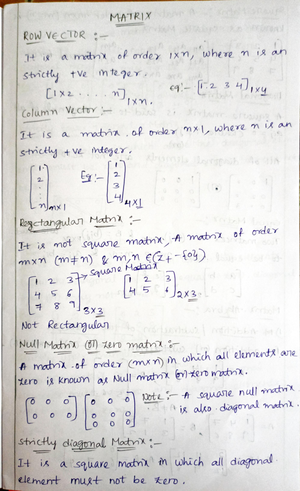 MATRIX
ROW VECTOR :-
It is a matrix of order 1×n, where n is an
strictly +ve integer.
[1 2 . . . . n]1×n. eg:- [1 2 3 4]1×4
Column Vector :-
It is a matrix of order n×1, where n is an
strictly +ve integer.
[1 2 : n]n×1 Eg:- [1 2 3 4]4×1
Rectangular Matrix :-
It is not square matrix. A matrix of order
m×n (m≠n) & m,n ∈(Z+ - {0})
→ square Matrix
[1 2 3 [1 2 3
4 5 6 4 5 6]2×3
7 8 9]3×3
Not Rectangular
Null Matrix (or) zero matrix :-
A matrix of order (m×n) in which all elements are
zero is known as Null matrix (or) zero matrix.
[0 0 0 [0 0 0 Note :- A square null matrix
0 0 0] 0 0 0 is also diagonal matrix.
0 0 0]
strictly diagonal Matrix :-
It is a square matrix in which all diagonal
element must not be zero.